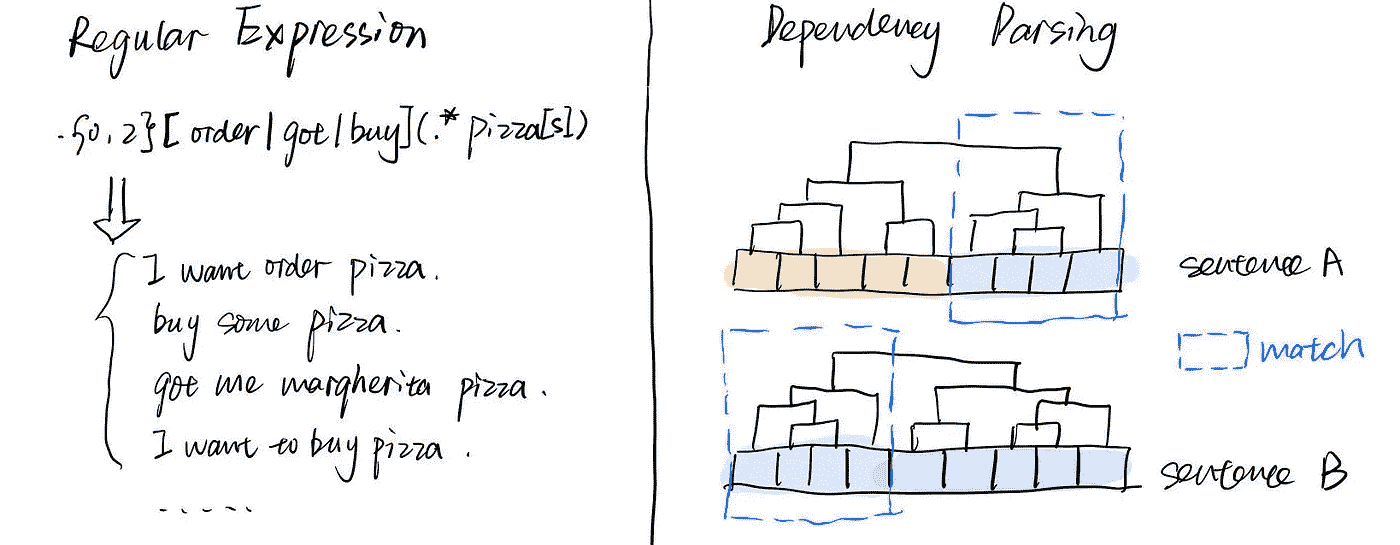 Regular Expression
.{0,2}[order|got|buy](.* pizza[s])
I want order pizza.
buy some pizza.
got me margherita pizza.
I want to buy pizza.
......
Dependency Parsing
sentence A
match
sentence B